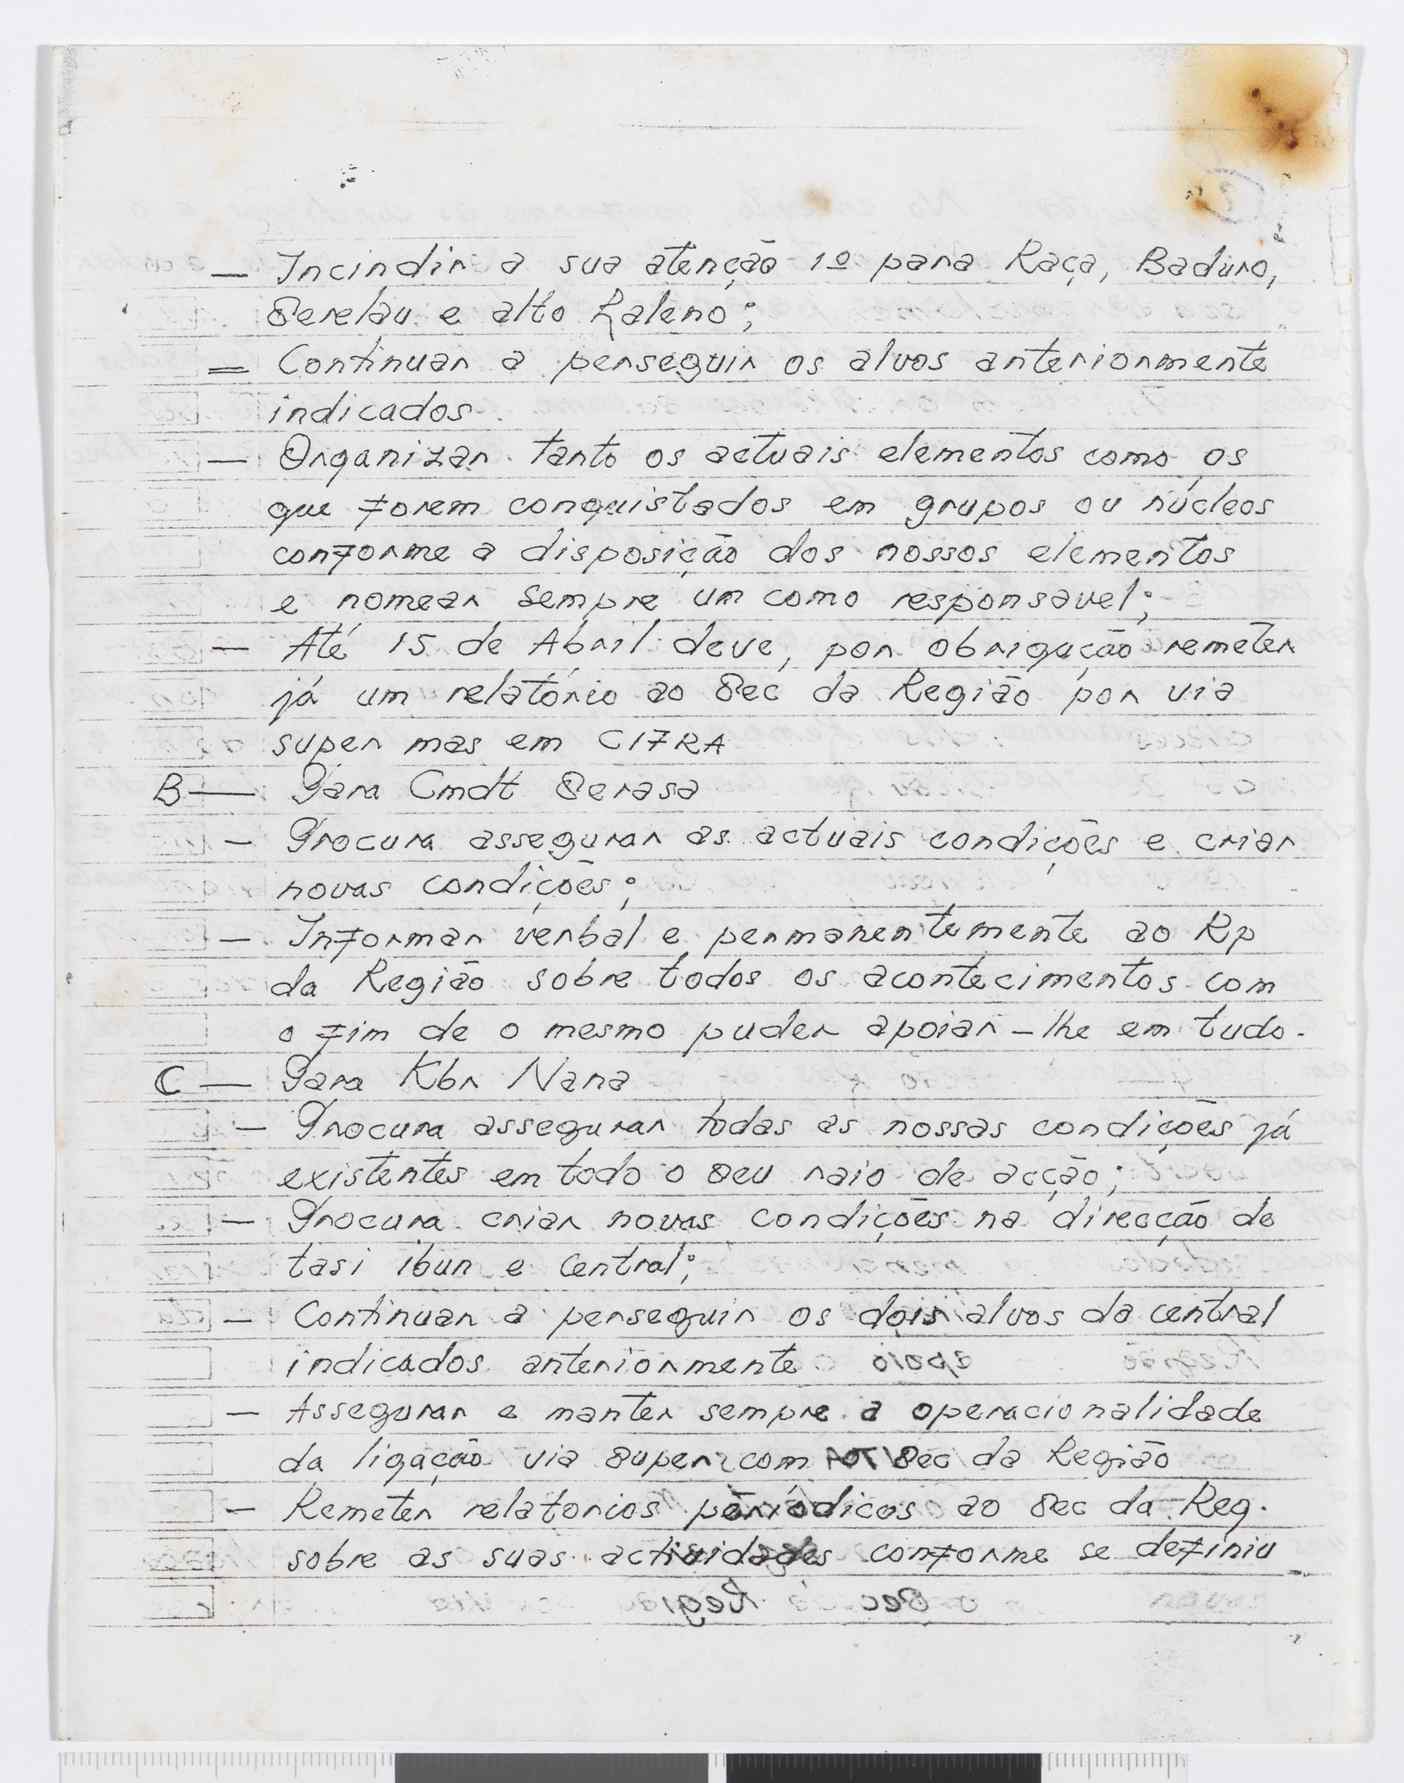 — Incindir a sua atenção 1º para Raça, Baduro,
Serelau e alto Laleno;
— Continuar a perseguir os alvos anteriormente
indicados.
— Organizar tanto os actuais elementos como os
que forem conquistados em grupos ou núcleos
conforme a disposição dos nossos elementos
e nomear sempre um como responsavel;
— Até 15 de Abril deve, por obrigação remeter
já um relatório ao Sec da Região por via
super mas em CIFRA
B — Para Cmdt Serasa
— Procura assegurar as actuais condições e criar
novas condições;
— Informar verbal e permanentemente ao Rp
da Região sobre todos os acontecimentos com
o fim de o mesmo puder apoiar-lhe em tudo.
C — Para Kbr Nana
— Procura assegurar todas as nossas condições já
existentes em todo o seu raio de acção;
— Procura criar novas condições na direcção de
tasi ibun e Central;
— Continuar a perseguir os dois alvos da central
indicados anteriormente
— Assegurar e manter sempre a operacionalidade
da ligação via super com Sec da Região
— Remeter relatorios périódicos ao Sec da Reg.
sobre as suas actividades conforme se definiu